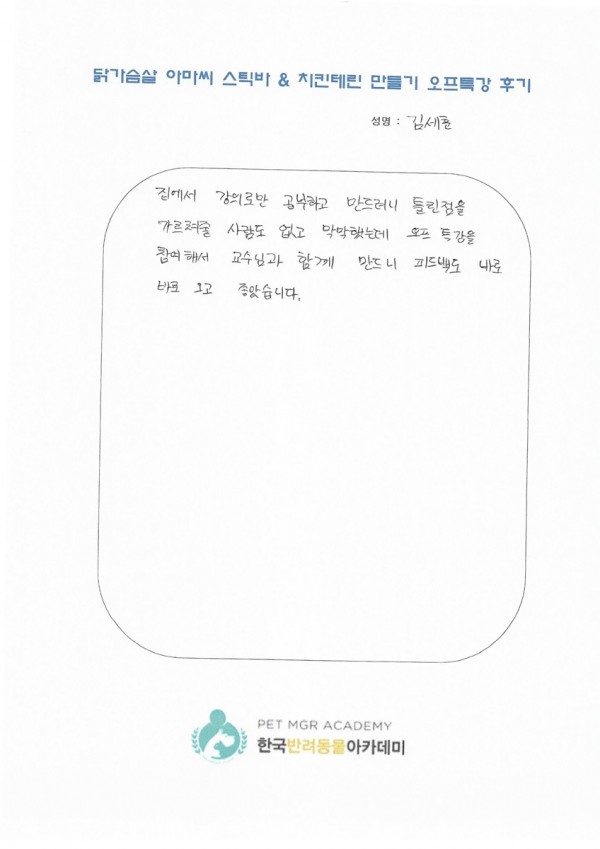 닭가슴살 아마씨 스틱바 & 치킨테린 만들기 오프특강 후기
성명 : 김세훈
집에서 강의로만 공부하고 만드려니 틀린점을
가르쳐줄 사람도 없고 막막했는데 오프 특강을
참여해서 교수님과 함께 만드니 피드백도 바로
바로 오고 좋았습니다.
PET MGR ACADEMY
한국반려동물아카데미